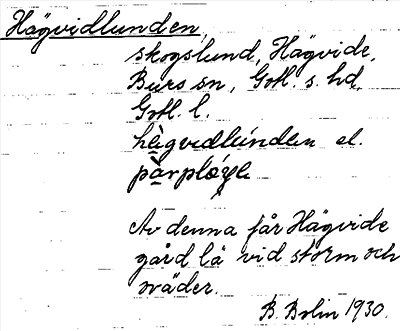 Hägvidlunden,
skogslund, Hägvide,
Burs sn, Gotl. s. hd,
Gotl. l.
hägvidlunden el.
Av denna får Hägvide
gård lä vid storm och
oväder.
B. Bolin 1930.